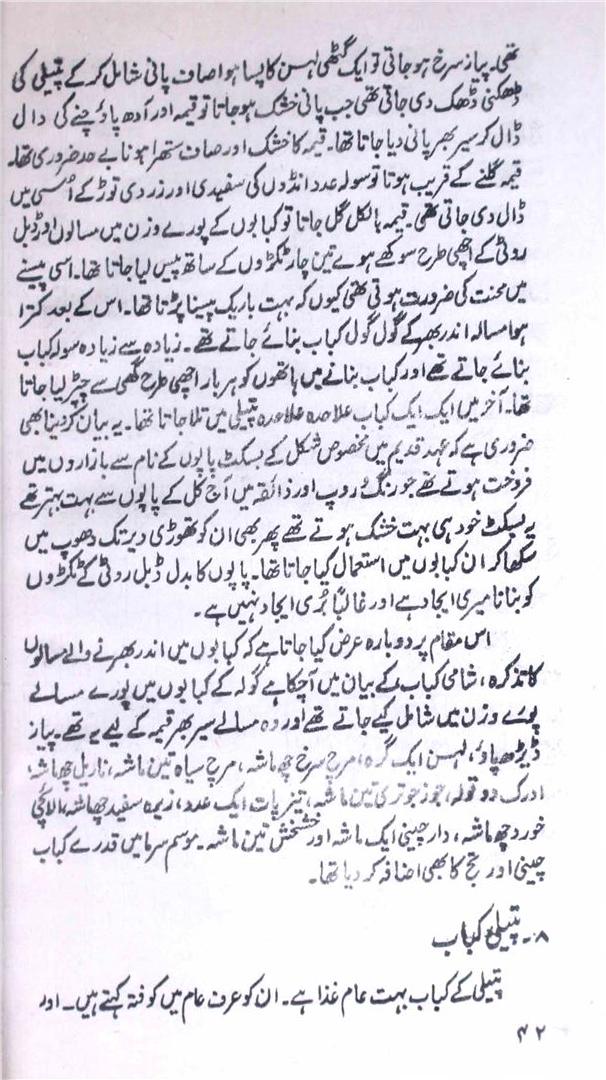 تھی۔ پیاز سرخ ہو جاتی تو ایک گٹھی لہسن کا پسا ہوا صاف پانی شامل کر کے پتیلی کی
ڈھکنی ڈھک دی جاتی تھی جب پانی خشک ہو جاتا تو قیمہ اور آدھ پاؤ چنے کی دال
ڈال کر سیر بھر پانی دیا جاتا تھا۔ قیمہ کا خشک اور صاف ستھرا ہونا بے حد ضروری تھا۔
قیمہ گلنے کے قریب ہوتا تو سولہ عدد انڈوں کی سفیدی اور زردی توڑ کے اسی میں
ڈال دی جاتی تھی۔ قیمہ بالکل گل جاتا تو کبابوں کے پورے وزن میں مسالوں اور ڈبل
روٹی کے اچھی طرح سوکھے ہوے تین چار ٹکڑوں کے ساتھ پیس لیا جاتا تھا۔ اسی پیسنے
میں محنت کی ضرورت ہوتی تھی کیوں کہ بہت باریک پیسنا پڑتا تھا۔ اس کے بعد کترا
ہوا مسالہ اندر بھر کے گول گول کباب بنائے جاتے تھے۔ زیادہ سے زیادہ سولہ کباب
بنائے جاتے تھے اور کباب بنانے میں ہاتھوں کو ہر بار اچھی طرح گھی سے چپڑ لیا جاتا
تھا۔ آخر میں ایک ایک کباب علاحدہ علاحدہ پتیلی میں تلا جاتا تھا۔ یہ بیان کر دینا بھی
ضروری ہے کہ عہد قدیم میں مخصوص شکل کے بسکٹ پاپوں کے نام سے بازاروں میں
فروخت ہوتے تھے جو رنگ روپ اور ذائقہ میں آج کل کے پاپوں سے بہت بہتر تھے
یہ بسکٹ خود ہی بہت خشک ہوتے تھے پھر بھی ان کو تھوڑی دیر تک دھوپ میں
سکھا کر ان کبابوں میں استعمال کیا جاتا تھا۔ پاپوں کا بدل ڈبل روٹی کے ٹکڑوں
کو بنانا میری ایجاد ہے اور غالباً بُری ایجاد نہیں ہے۔
اس مقام پر دوبارہ عرض کیا جاتا ہے کہ کبابوں میں اندر بھرنے والے مسالوں
کا تذکرہ، شامی کباب کے بیان میں آ چکا ہے گولہ کے کبابوں میں پورے مسالے
پورے وزن میں شامل کیے جاتے تھے اور وہ مسالے سیر بھر قیمہ کے لیے یہ تھے۔ پیاز
ڈیڑھ پاؤ، لہسن ایک گرہ، مرچ سرخ چھ ماشہ، مرچ سیاہ تین ماشہ، ناریل چھ ماشہ،
ادرک دو تولہ، جوز جوتری تین ماشہ، تیز پات ایک عدد، زیرہ سفید چھ ماشہ، الائچی
خورد چھ ماشہ، دار چینی ایک ماشہ اور خشخش تین ماشہ۔ موسم سرما میں قدرے کباب
چینی اور تج کا بھی اضافہ کر دیا تھا۔
۸۔ پتیلی کباب
پتیلی کے کباب بہت عام غذا ہے۔ ان کو عرف عام میں کوفتہ کہتے ہیں۔ اور
۴۲